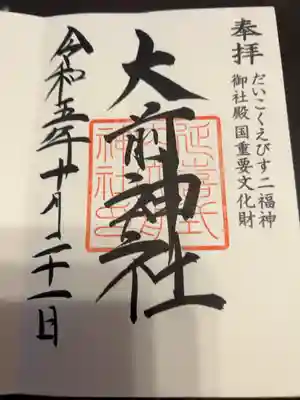 奉拝
だいこくえびす二福神
御社殿国重要文化財
大前神社
令和五年十月二十一日